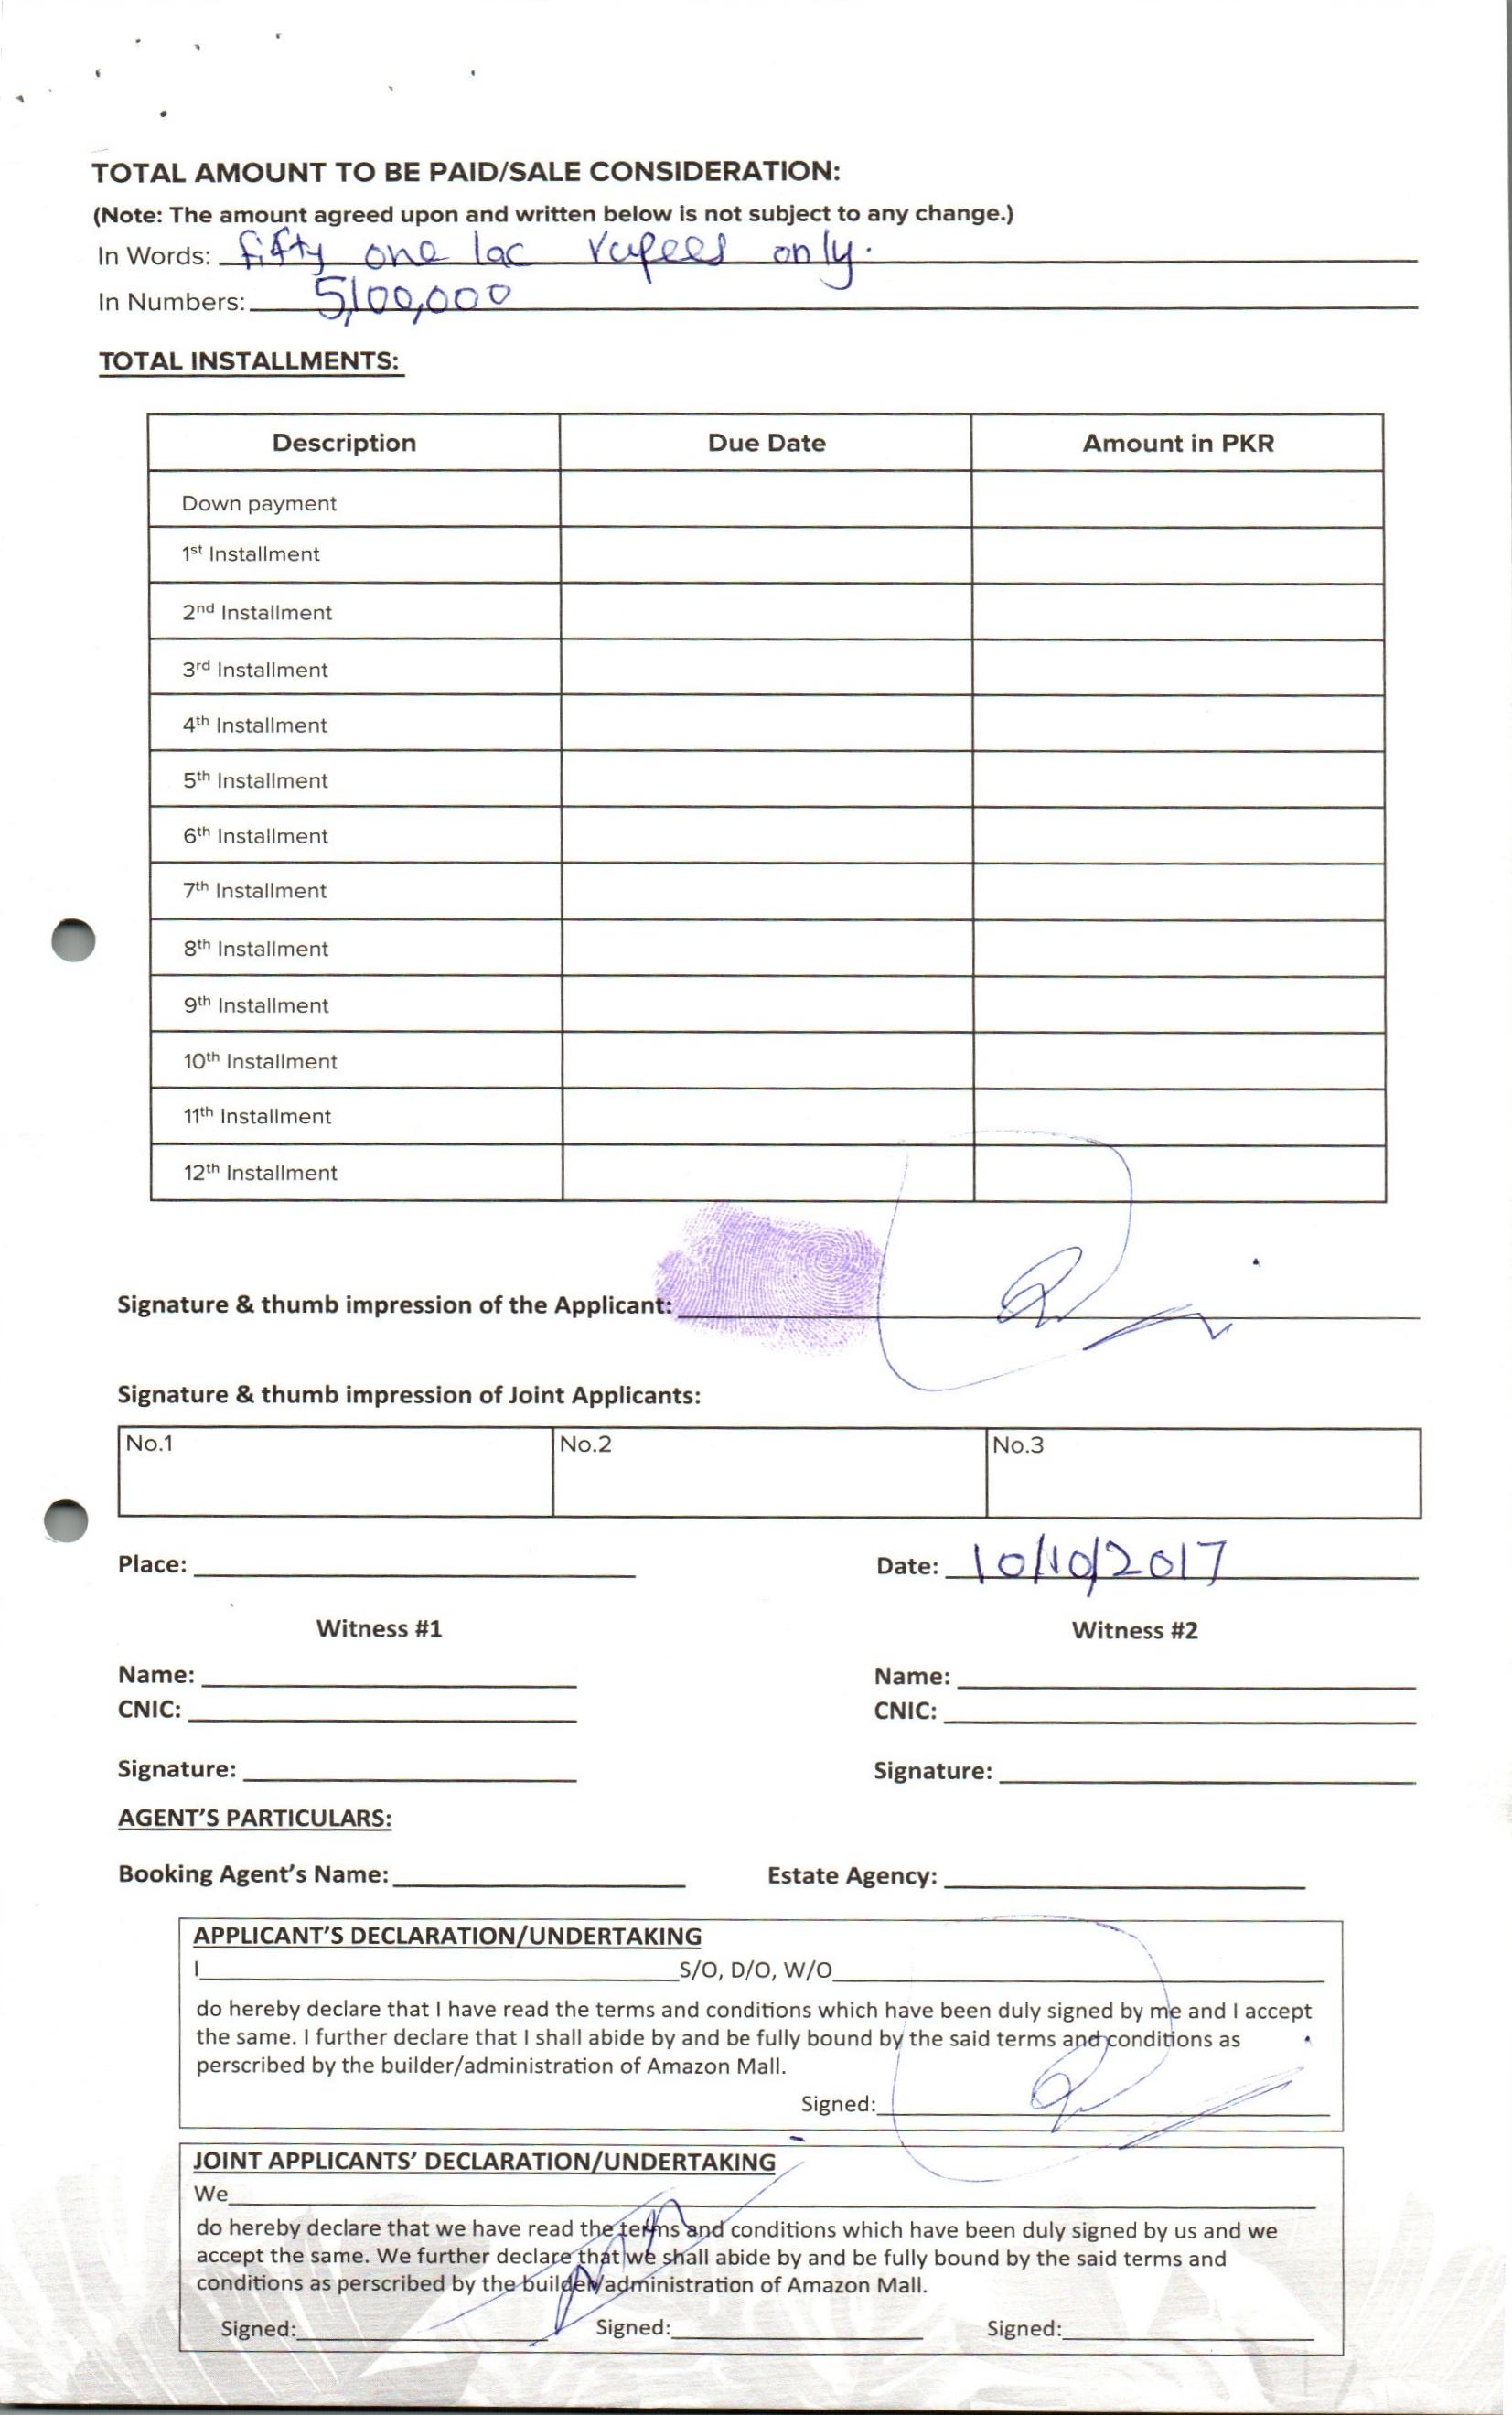 TOTAL AMOUNT TO BE PAID/SALE CONSIDERATION:
(Note: The amount agreed upon and written below is not subject to any change.)
In Words: fifty one lac rupees only.
In Numbers: 5,100,000
TOTAL INSTALLMENTS:
Description Due Date Amount in PKR
Down payment
1st Installment
2nd Installment
3rd Installment
4th Installment
5th Installment
6th Installment
7th Installment
8th Installment
9th Installment
10th Installment
11th Installment
12th Installment
Signature & thumb impression of the Applicant:
Signature & thumb impression of Joint Applicants:
No.1 No.2 No.3
Place: Date: 10/10/2017
Witness #1 Witness #2
Name: Name:
CNIC: CNIC:
Signature: Signature:
AGENT'S PARTICULARS:
Booking Agent's Name: Estate Agency:
APPLICANT'S DECLARATION/UNDERTAKING
I S/O, D/O, W/O
do hereby declare that I have read the terms and conditions which have been duly signed by me and I accept
the same. I further declare that I shall abide by and be fully bound by the said terms and conditions as
perscribed by the builder/administration of Amazon Mall.
Signed:
JOINT APPLICANTS' DECLARATION/UNDERTAKING
We
do hereby declare that we have read the terms and conditions which have been duly signed by us and we
accept the same. We further declare that we shall abide by and be fully bound by the said terms and
conditions as perscribed by the builder/administration of Amazon Mall.
Signed: Signed: Signed: